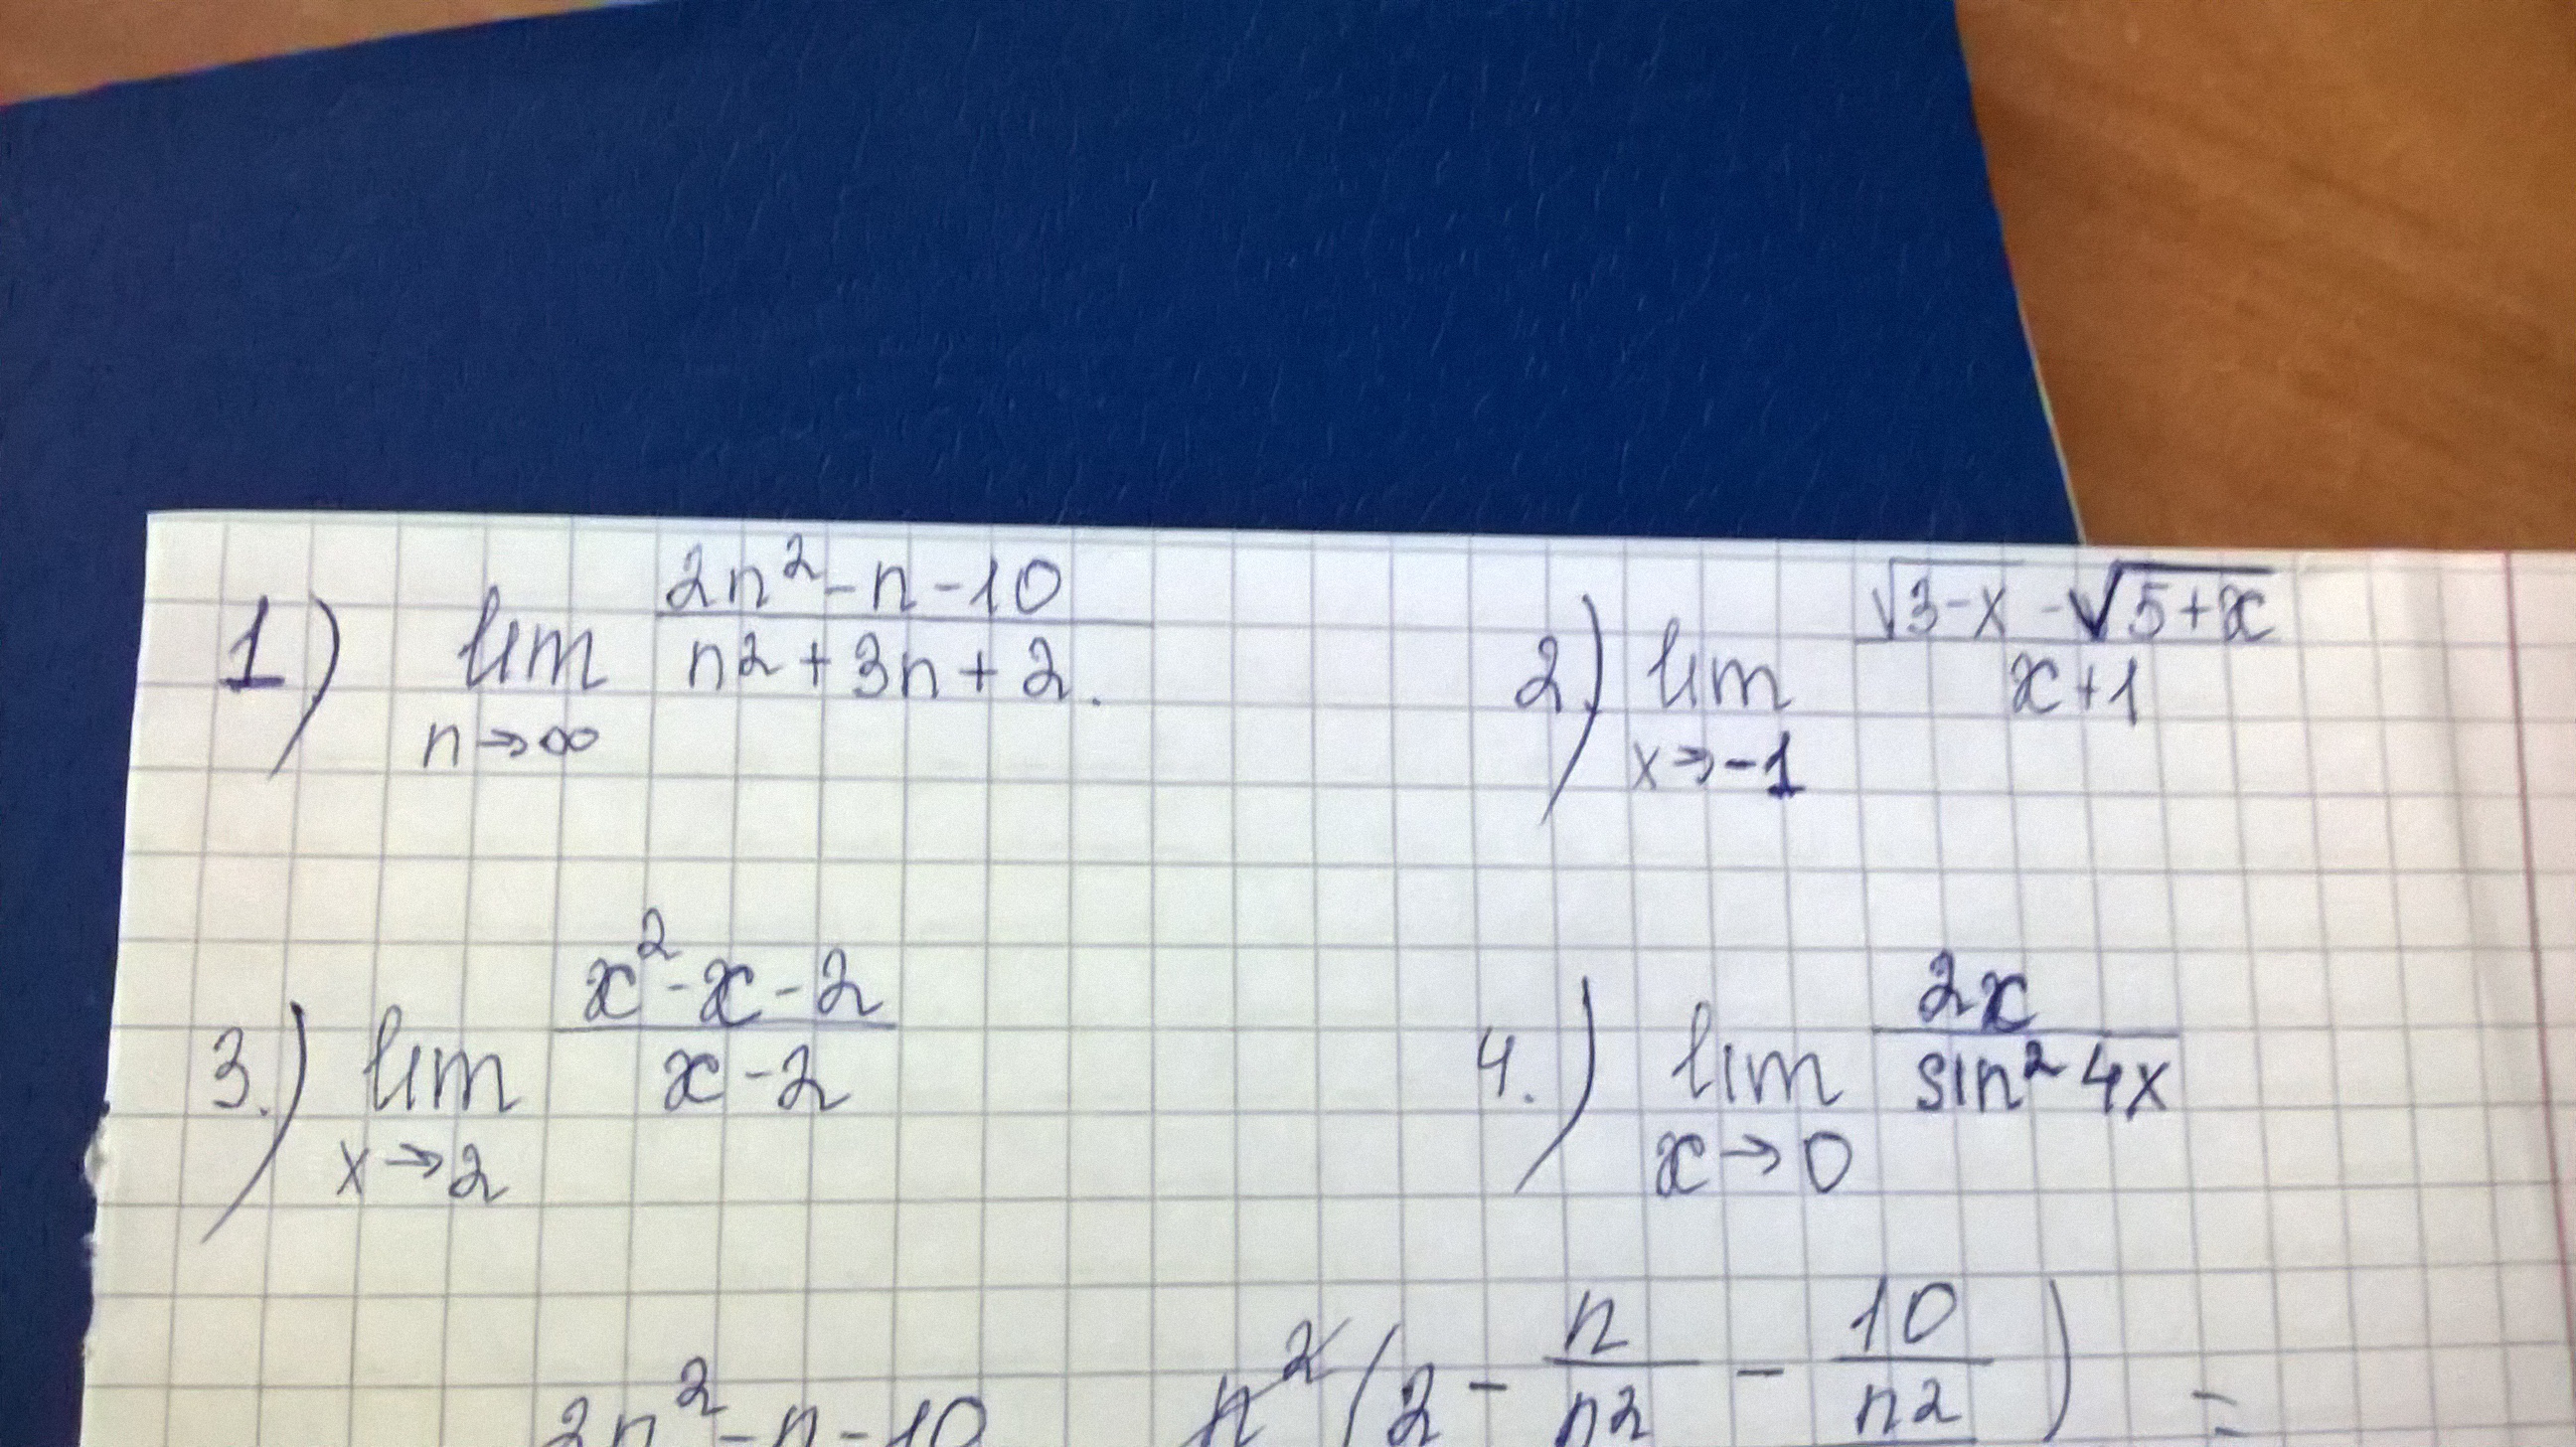 1) lim n→∞ (2n² - n - 10)/(n2 + 3n + 2.
2.) lim x→-1 (√3-x - √5+x)/(x+1)
3.) lim x→2 (x² - x - 2)/(x - 2)
4.) lim x→0 2x/(sin² 4x)
2n² - n - 10 n²(2 - n/n2 - 10/n2) =